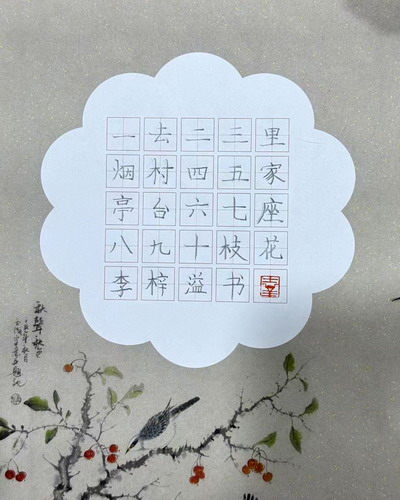 一去二三里
烟村四五家
亭台六七座
八九十枝花
李梓溢书